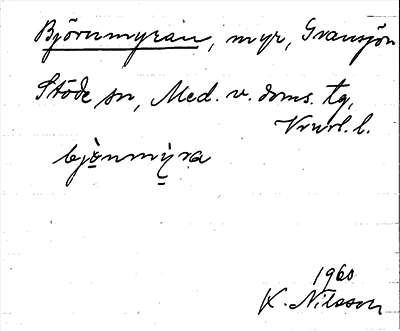 Björnmyran, myr, Gransjön
Stöde sn, Med. v. doms. tg,
Vrnrl. l.
bjö̱nmy̱ra
1960
K. Nilsson